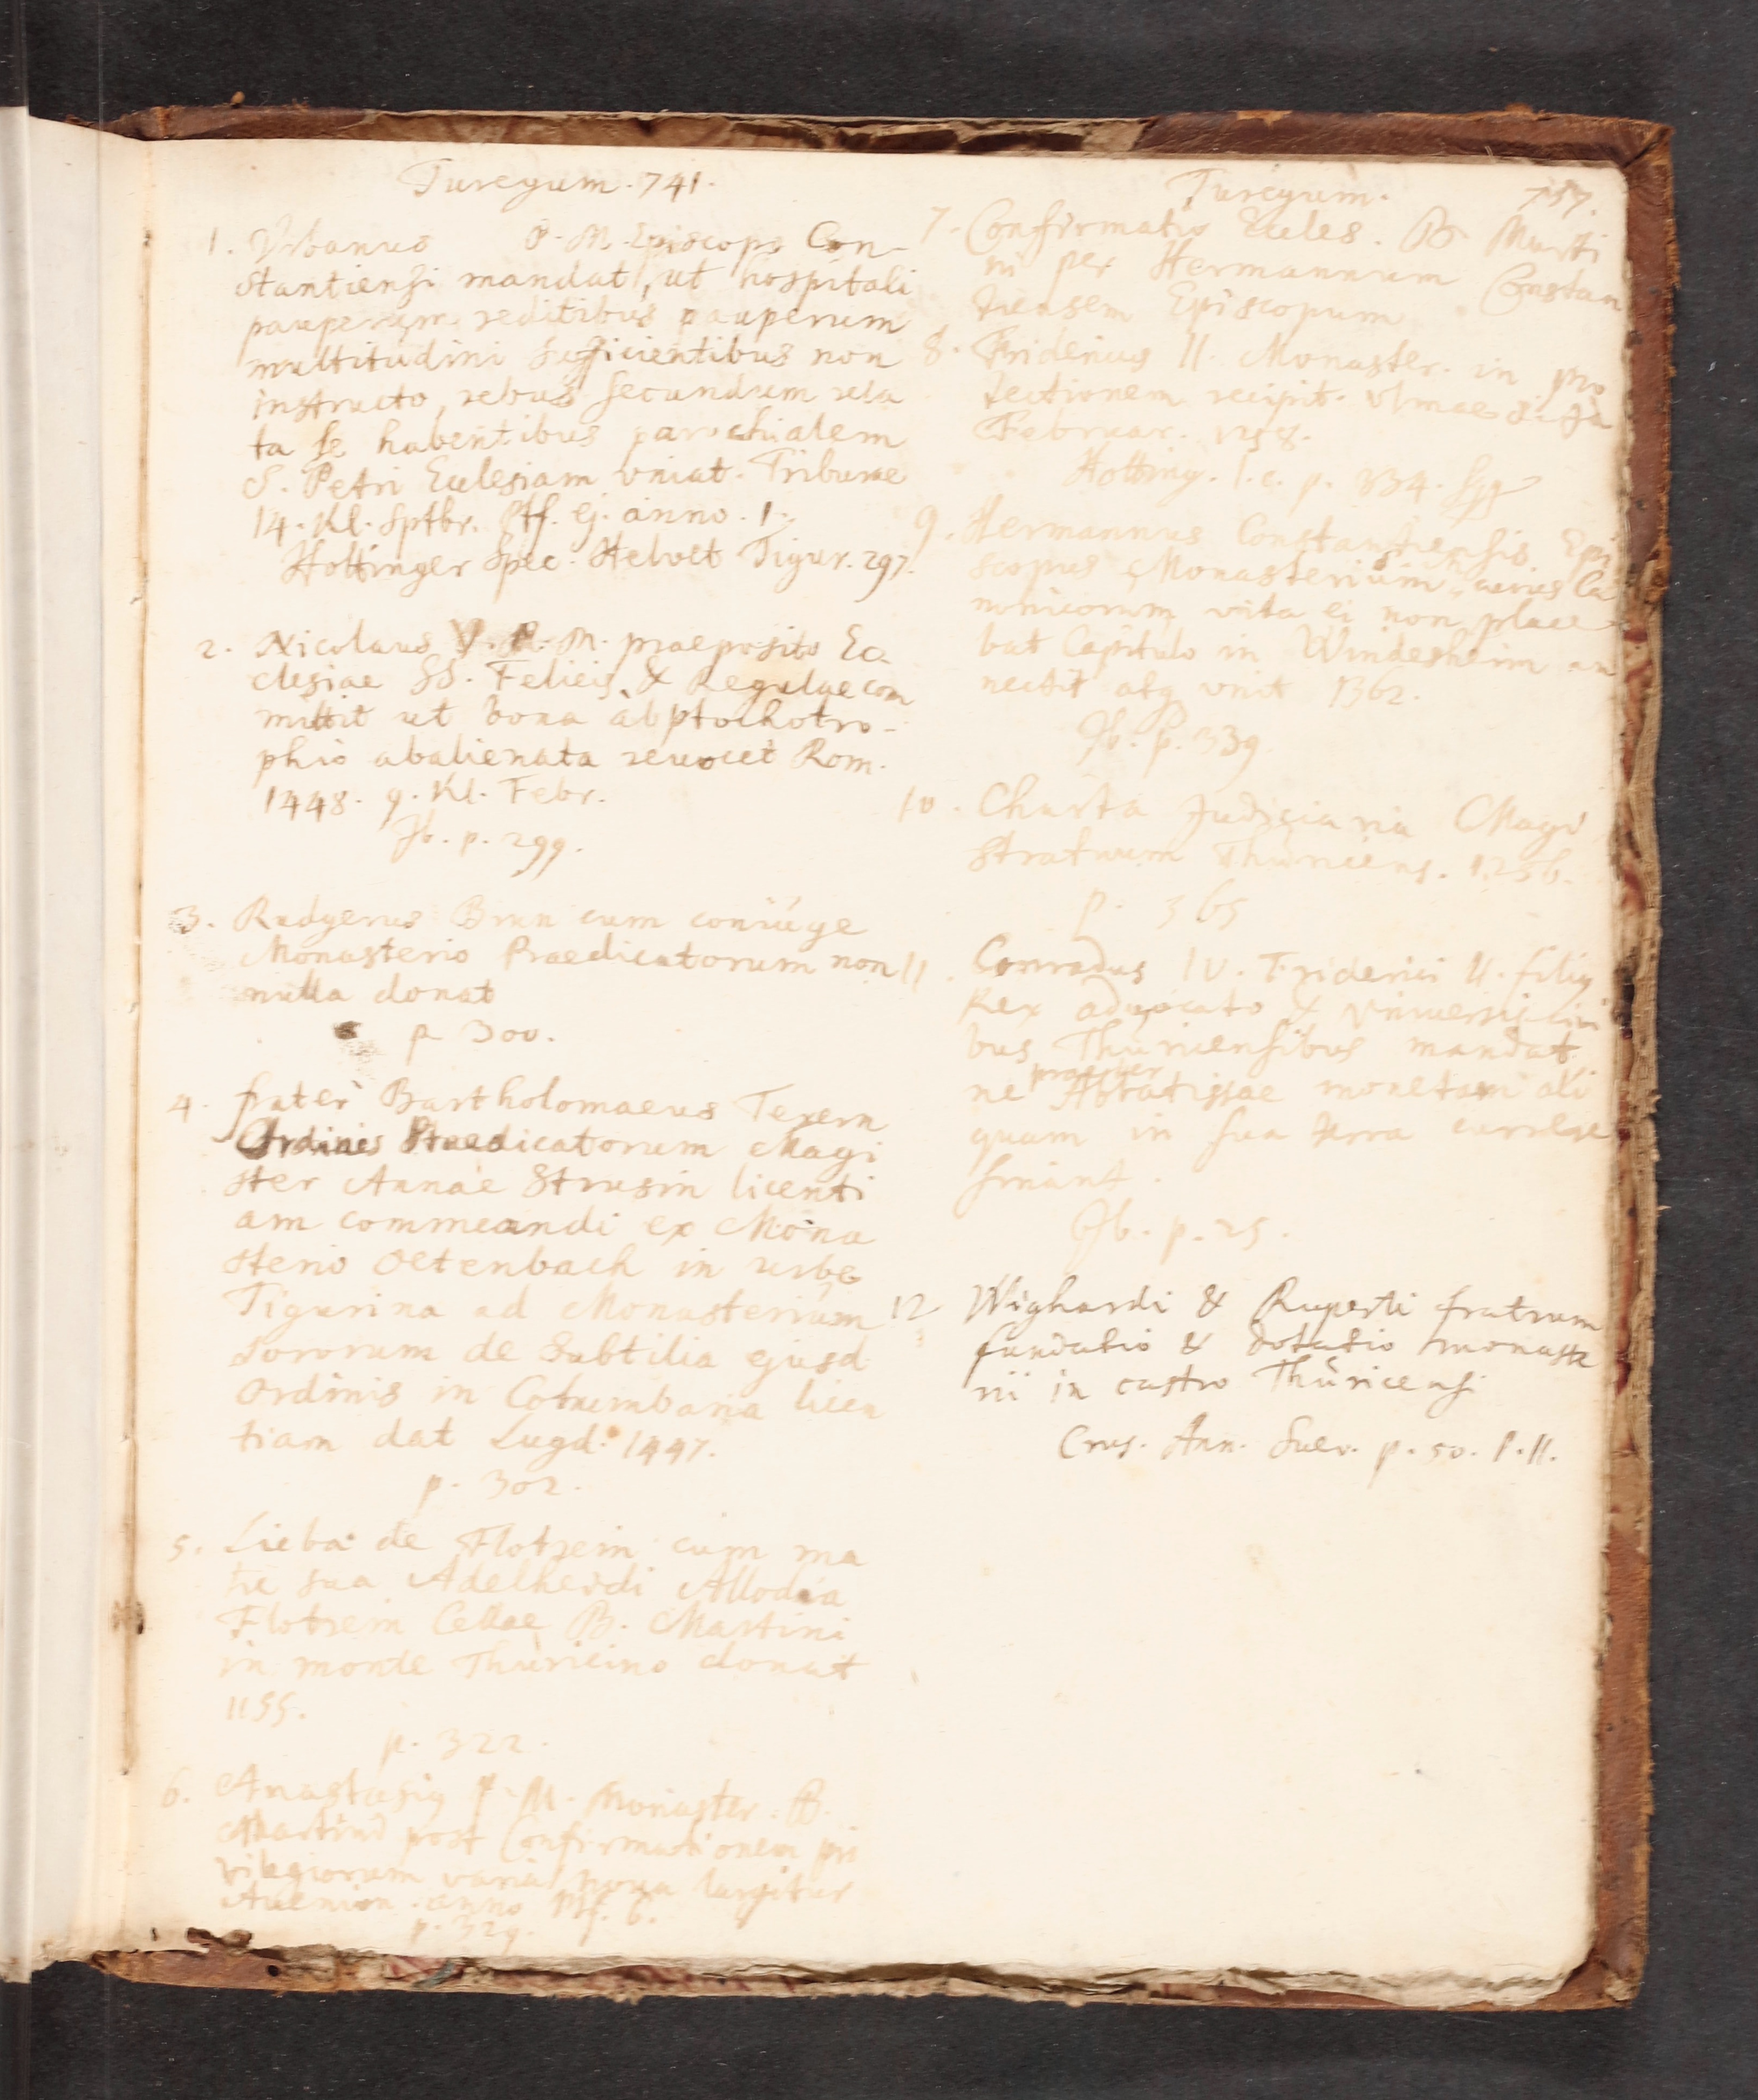 Turegum. 741.
1. Vrbanus P. M. Episcopo Con-
stantiensi mandat, ut hospitali
pauperum reditibus pauperum
multitudini sufficientibus non
instructo, rebus secundum rela
ta se habentibus parochialem
S. Petri Eclesiam vniat. Triburae
14. Kl. Sptbr. Ptf. ej. anno. 1.
Hottinger Spec. Helvet Tigur. 297.
2. Nicolaus V. P. M. praeposito Ec
clesiae SS. Felicis & Regulae com
mittit ut bona abptochotro-
phio abalienata reuocet Rom.
1448. 9. Kl. Febr.
Ib. p. 299.
3. Rudgerus Brun cum coniúge
Monasterio Praedicatorum non
nulla donat
p 300.
4. frater Bartholomaeus Texern
Ordinis Praedicatorum Magi
ster Annae Strusin licenti
am commeandi ex Mona
sterio Oetenbach in urbe
Tigurina ad Monasterium
Sororum de Subtilia ejusd
Ordinis in Columbaria licen
tiam dat Lugd. 1447.
p. 302.
5. Lieba de Flotzein cum ma
tre sua Adelheidi Allodia
Flotzein Cellae B. Martini
in monte Thuricino donat
1155.
p. 322.
6. Anastasig P. M. Monaster. B.
Martini post Confirmationem pri
vilegiorum varia noua largitur
Auenion. anno Ptf. 6.
p. 329.
Turegum. 757.
7. Confirmatio Eccles. B. Marti
ni per Hermannum Constan
tiensem Episcopum
8. Fridericus II. Monaster. in pro
tectionem recipit. Vlmae 8. Id
Februar. 1258.
Hotting. l. c. p. 334. sqq
9. Hermannus Constantiensis Epi
scopus Monasterium, cuius Ca
nonicorum vita ei non place
bat Capitulo in Windesheim an
nectit atq vnit 1362.
Ib. p. 339
10. Charta Judiciaria Magi
stratuum Thuricens. 1256.
p. 365
11. Conradus IV. Friderici II. filig
Rex aduocato & vniuersis ciui
bus Thuricensibus mandat
ne praeter Abbatissae monetam ali
quam in sua terra currere
sinant.
Ib. p. 25.
12 Wighardi & Ruperti fratrum
fundatio & dotatio monaste
rii in castro Thuricensi
Crus. Ann. Suev. p. 50. P. II.